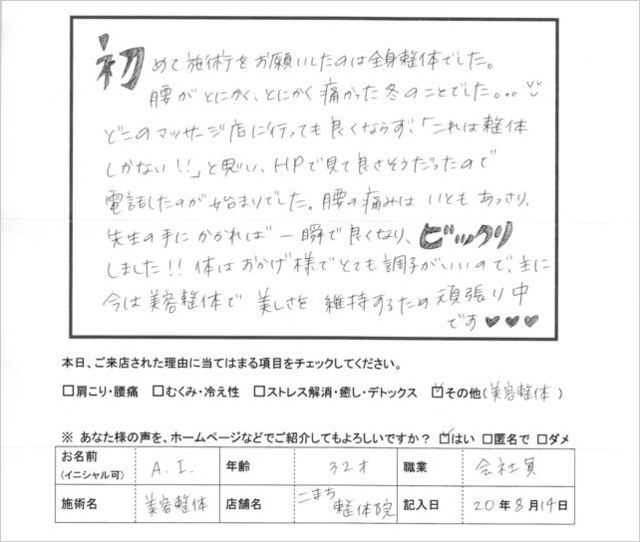 初めて施術をお願いしたのは全身整体でした。
腰がとにかく、とにかく痛かった冬のことでした。。。
どこのマッサージ店に行っても良くならず、「これは整体
しかない!!」と思い、HPで見て良さそうだったので
電話したのが始まりでした。腰の痛みは いとも あっさり、
先生の手にかかれば 一瞬で良くなり、ビックリ
しました!! 体はおかげ様でとても調子がいいので、主に
今は美容整体で 美しさを 維持するため 頑張り中
です♥♥♥
本日、ご来店された理由に当てはまる項目をチェックしてください。
□肩こり・腰痛 □むくみ・冷え性 □ストレス解消・癒し・デトックス ☑その他(美容整体)
※ あなた様の声を、ホームページなどでご紹介してもよろしいですか? ☑はい □匿名で □ダメ
お名前 (イニシャル可) A.I. 年齢 32才 職業 会社員
施術名 美容整体 店舗名 こまち整体院 記入日 20年8月14日